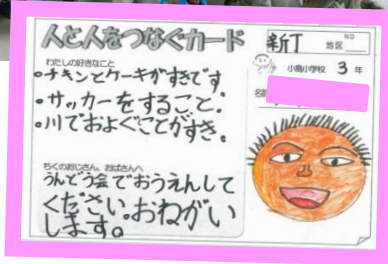 人と人をつなぐカード
新丁 地区 NO
わたしの好きなこと
・チキンとケーキがすきです
・サッカーをすること.
・川でおよぐことがすき。
小島小学校 3年
名前
ちくのおじさん、おばさんへ
うんどう会でおうえんして
ください。おねがい
します。